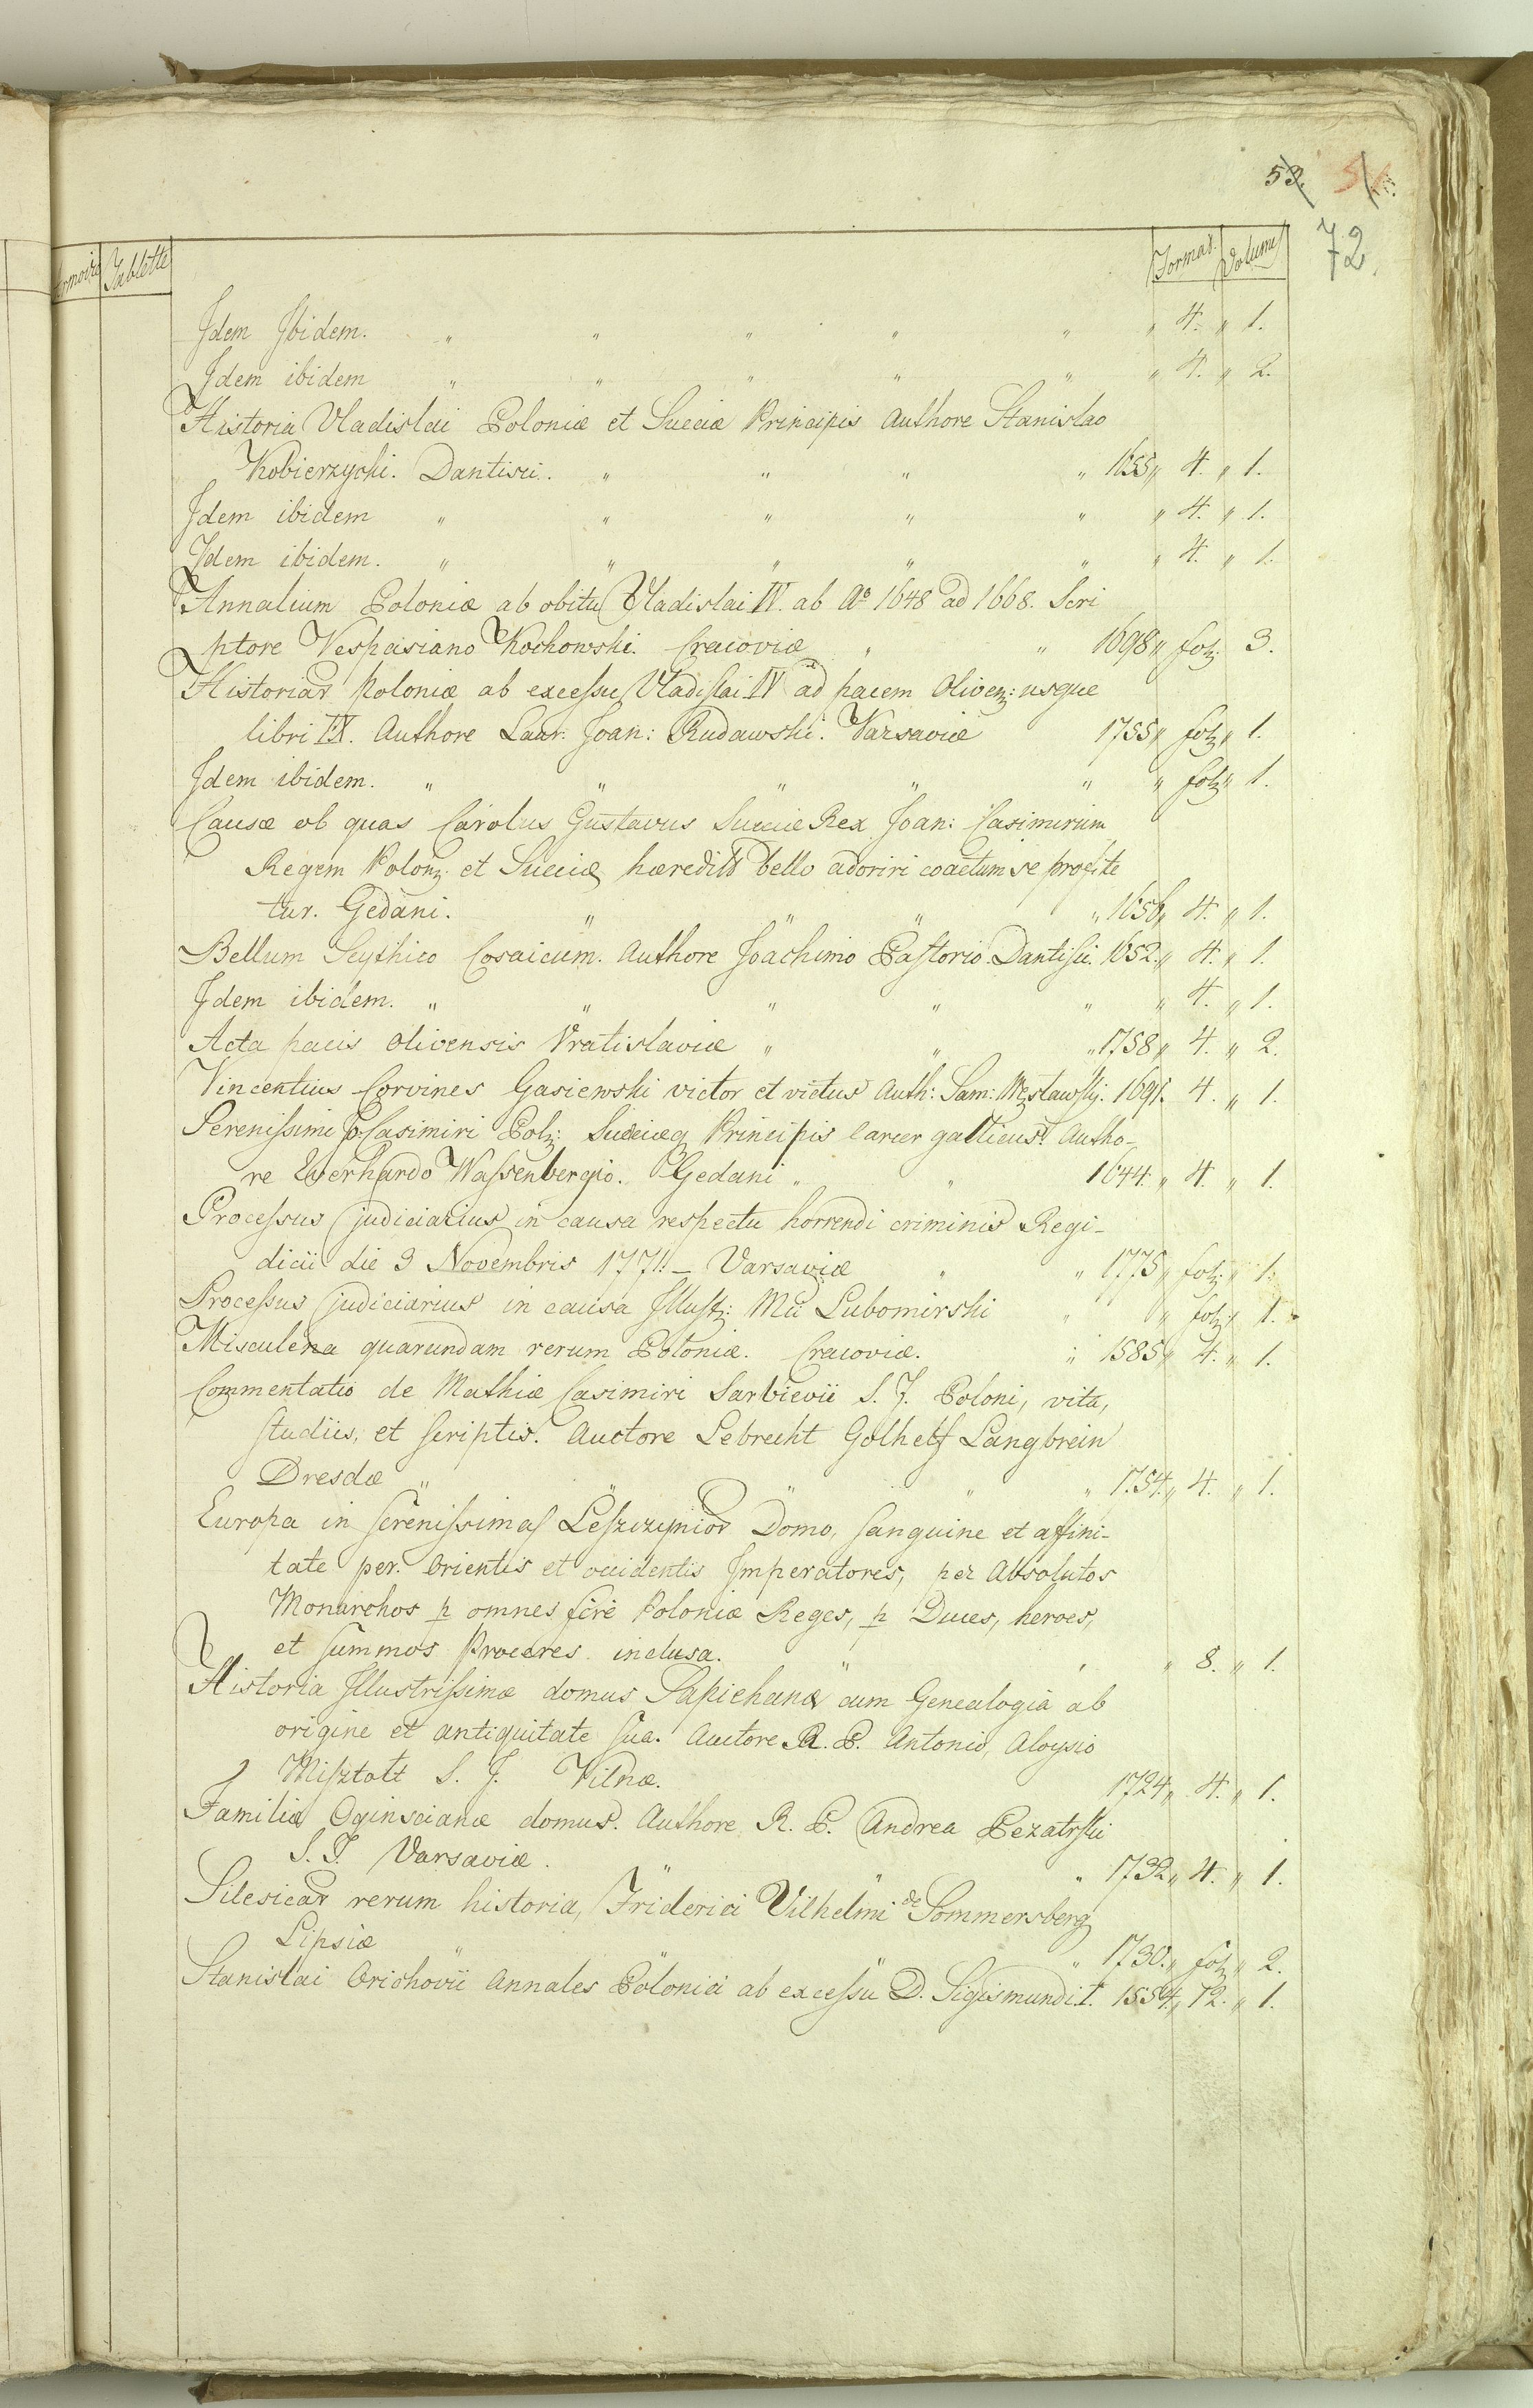 53. 51.
72.
Armoire Tablette Format. Volume
Idem Ibidem. " " " " " " 4. " 1.
Idem ibidem " " " " " " 4. " 2.
Historia Vladislai Poloniæ et Sueciæ Principis Authore Stanislao
Kobierzycki. Dantisci. " " " " 1655 " 4. " 1.
Idem ibidem " " " " " " 4. " 1.
Idem ibidem. " " " " " " 4. " 1.
Annalium Poloniæ ab obitu Vladislai IV. ab Aº 1648 ad 1668. Scri
ptore Vespasiano Kochowski. Cracoviæ " " 1698 " fol: 3.
Historiar Poloniæ ab excessu Vladislai IV ad pacem Oliven: usque
libri IX. Authore Laur: Joan: Rudawski. Varsaviæ 1755 " fol: " 1.
Idem ibidem. " " " " " fol: " 1.
Causæ ob quas Carolus Gustavus Sueciæ Rex Joan: Casimirum
Regem Polon: et Sueciæ hæredit bello adoriri coactum se profite
tur. Gedani. " " " " 1656 " 4. " 1.
Bellum Scythico Cosaicum. Authore Joachimo Pastorio. Dantisci. 1652. " 4. " 1.
Idem ibidem. " " " " " " 4. " 1.
Acta pacis Olivensis Vratislaviæ " " " 1758 " 4. " 2.
Vincentius Corvines Gasiewski victor et victus Auth: Sam: 1691. 4. " 1.
Serenissimi Jo: Casimiri Pol: Sueciæq Principis carcer gallicus. Autho-
re Everhardo Wassenbergio. Gedani " " 1644. " 4. " 1.
Processus judiciarius in causa respectu horrendi criminis Regi-
dicii die 3 Novembris 1771! - Varsaviæ " " 1775 " fol: " 1.
Processus judiciarius in causa Illust: Mti Lubomirski " " fol: " 1.
Misculena quarundam rerum Poloniæ. Cracoviæ. " 1585 " 4. " 1.
Commentatio de Mathiæ Casimiri Sarbievii S. J. Poloni, vita,
studiis, et scriptis. Auctore Lebrecht Golhelf Langbrein
Dresdæ " " " " 1754. " 4. " 1.
Europa in serenissimas Leszczynior Domo, sanguine et affini-
tate per. Orientis et occidentis Imperatores, per Absolutos
Monarchos p omnes ferè Poloniæ Reges, p Duces, heroes,
et summos Proceres inclusa. " " " 8. " 1.
Historia Illustrissimæ domus Sapiehanæ cum Genealogiâ ab
origine et antiquitate sua. Auctore R. P. Antonio, Aloysio
Misztolt S. J. Vilnæ. 1724 " 4. " 1.
Familia Oginscianæ domus. Authore R. P. Andrea Pezatrski
S. J. Varsaviæ. " " " 1732 " 4. " 1.
Silesicar rerum historia, Friderici Vilhelmi de Sommersberg
Lipsiæ " " " " 1730. " fol: " 2.
Stanislai Orichovii Annales Polonici ab excessu D. Sigismundi I. 1554. " 12. " 1.